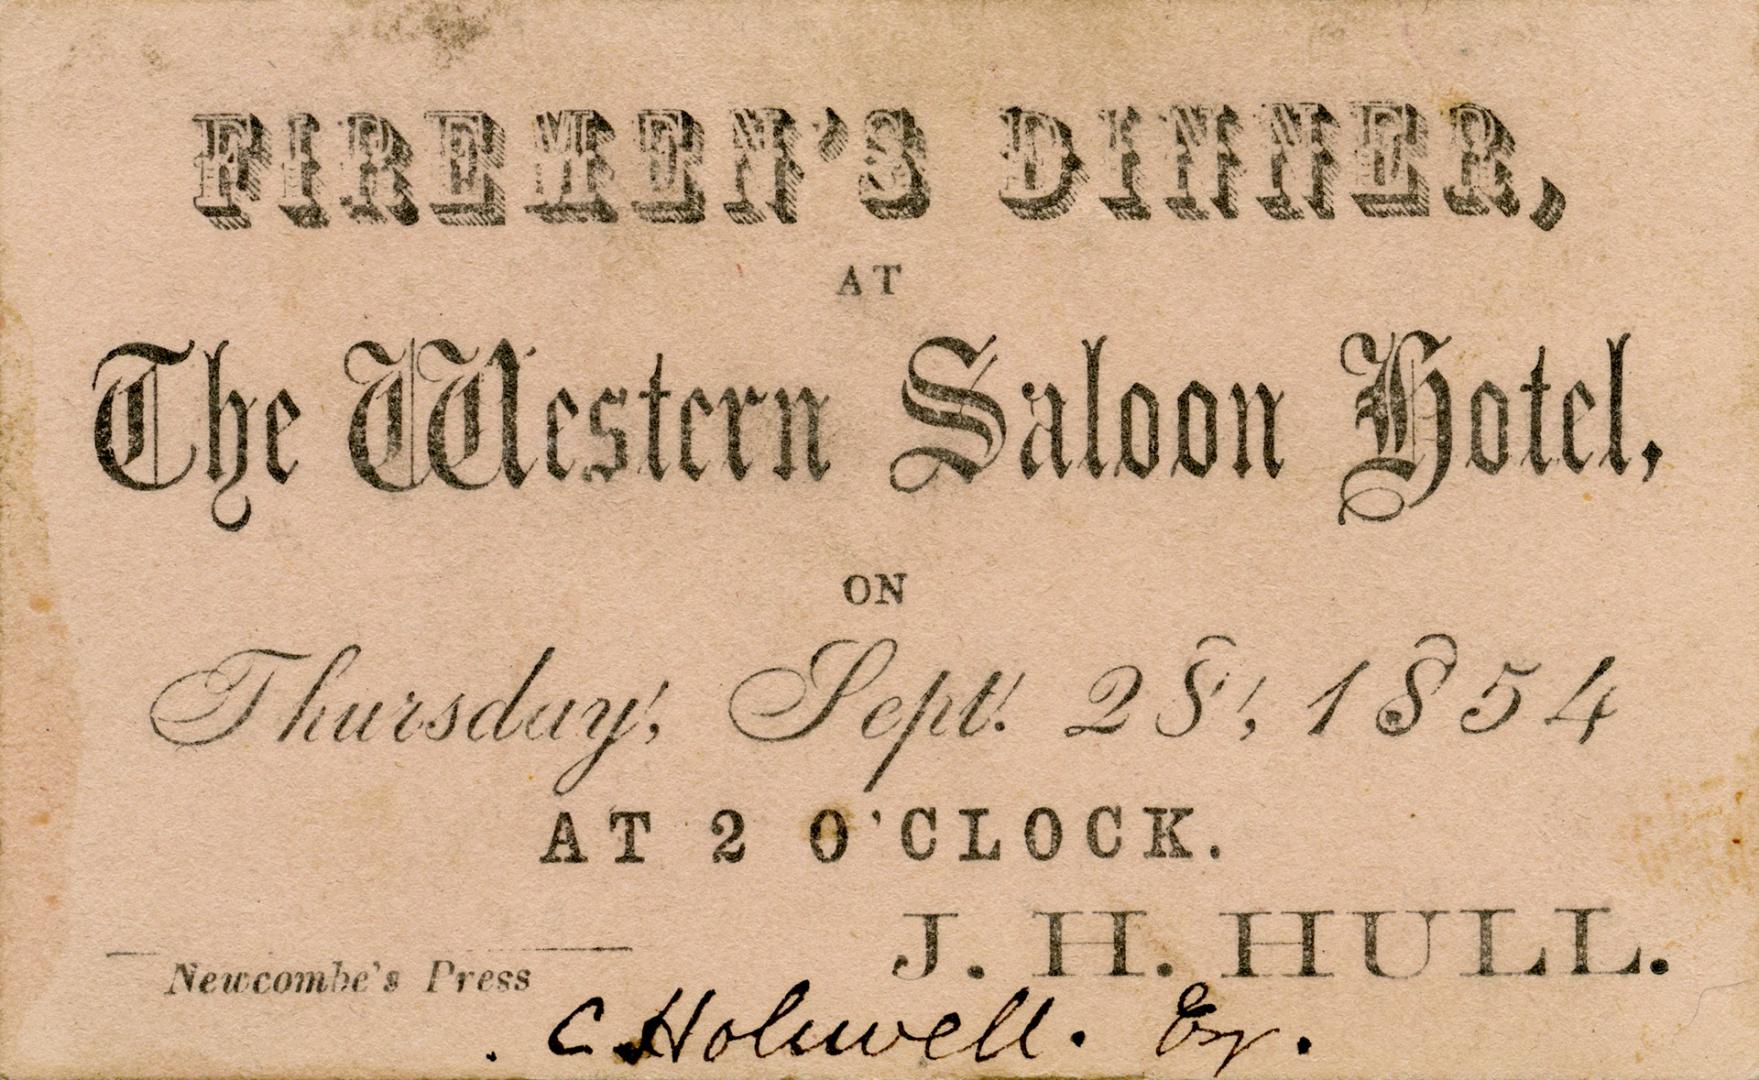 FIREMEN'S DINNER,
AT
The Western Saloon Hotel,
ON
Thursday, Sept. 28, 1854
AT 2 O'CLOCK.
J. H. HULL.
Newcombe's Press
C. Holiwell. Esq.